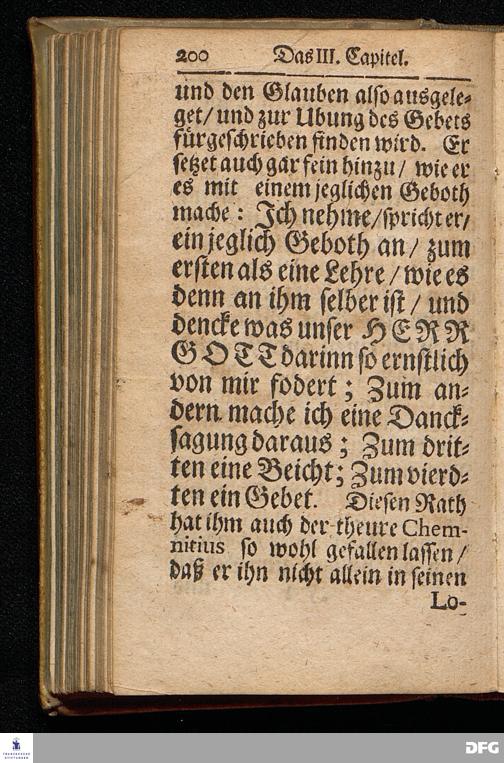 200 Das III. Capitel.
und den Glauben also ausgele-
get/ und zur Ubung des Gebets
fürgeschrieben finden wird. Er
setzet auch gar fein hinzu/ wie er
es mit einem jeglichen Geboth
mache: Ich nehme/ spricht er/
ein jeglich Geboth an/ zum
ersten als eine Lehre/ wie es
denn an ihm selber ist/ und
dencke was unser HERR
GOTT darinn so ernstlich
von mir fodert; Zum an-
dern mache ich eine Danck-
sagung daraus; Zum drit-
ten eine Beicht; Zum vierd-
ten ein Gebet. Diesen Rath
hat ihm auch der theure Chem-
nitius so wohl gefallen lassen/
daß er ihn nicht allein in seinen
Lo-
FRANCKESCHE
STIFTUNGEN
DFG